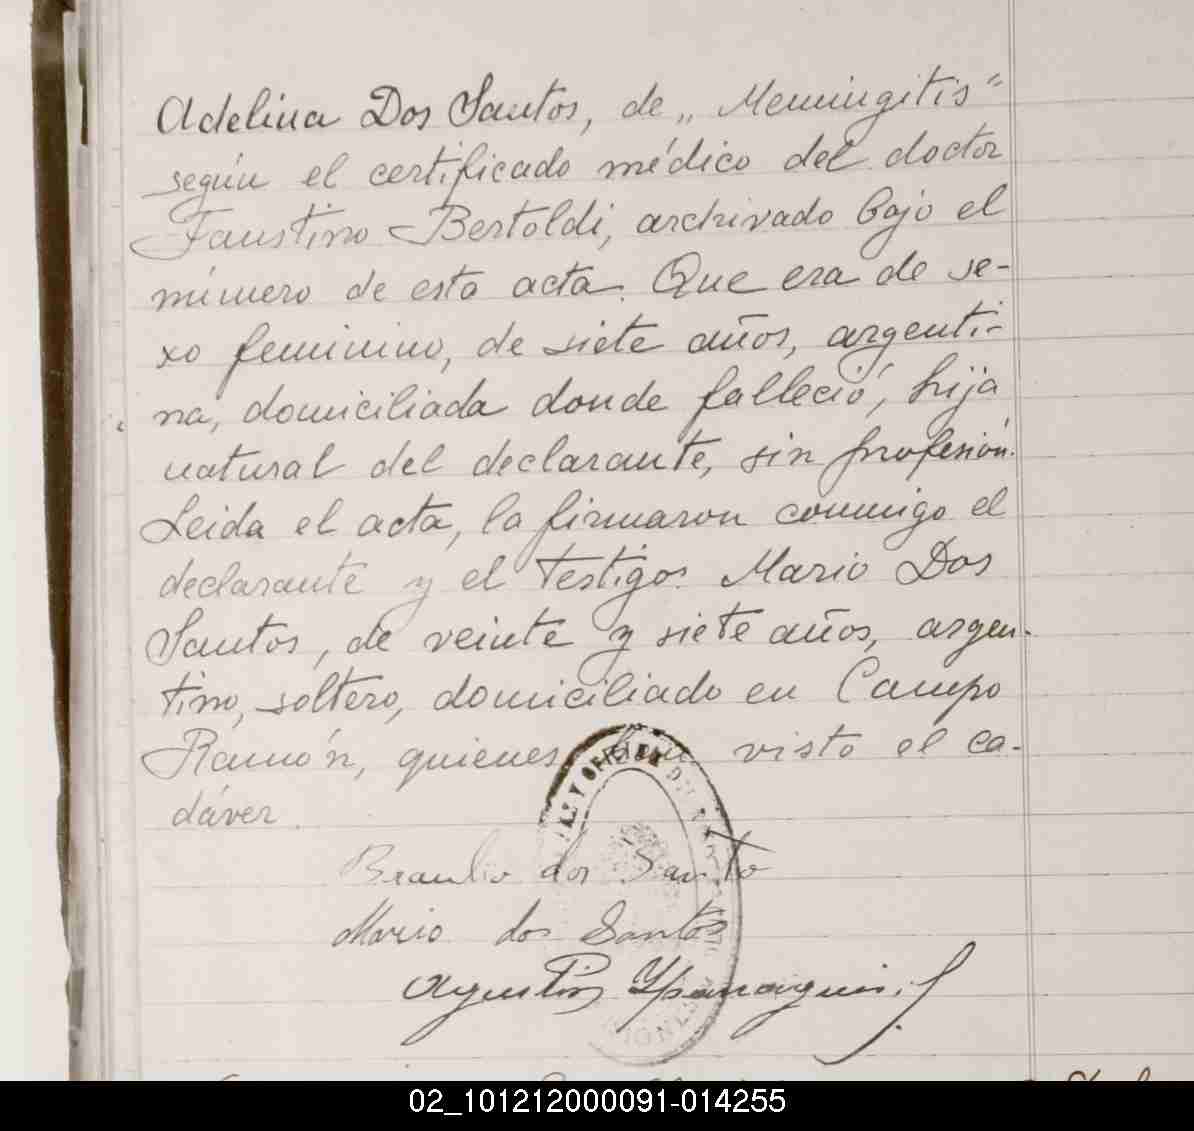 Adelina Dos Santos, de „Meningitis"
según el certificado médico del doctor
Faustino Bertoldi, archivado bajo el
número de esta acta. Que era de se-
xo feminino, de siete años, argenti-
na, domiciliada donde falleció, hija
natural del declarante, sin profesión.
Leida el acta, la firmaron conmigo el
declarante y el testigo: Mario Dos
Santos, de veinte y siete años, argen-
tino, soltero, domiciliado en Campo
Ramón, quienes han visto el ca-
dáver.
Braulio dos Santo
Mario dos Santos
Agustin
02_101212000091-014255